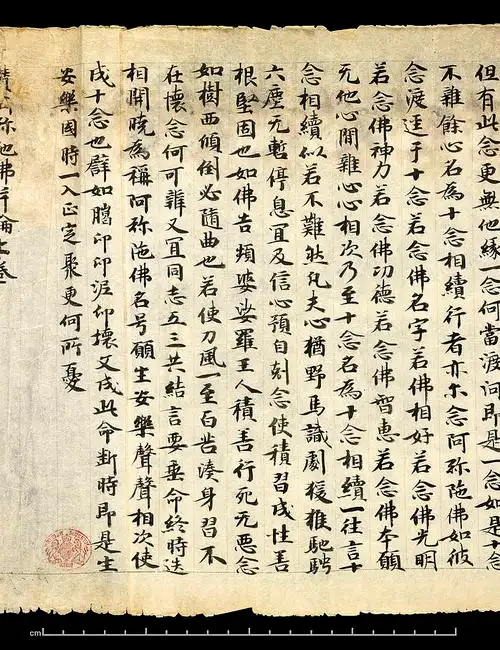 但有此念更無他緣一念何當渡河即是一念如是十念
不雜餘心名為十念相續行者亦尒念阿弥陁佛如彼
念渡逕于十念若念佛名字若佛相好若念佛光明
若念佛神力若念佛功德若念佛智惠若念佛本願
无他心間雜心心相次乃至十念名為十念相續一往言十
念相續似若不難然凡夫心猶野馬識劇猨猴馳騁
六塵无暫停息宜及信心預自剋念使積習成性善
根堅固也如佛告頻婆娑羅王人積善行死无悪念
如樹西傾倒必隨曲也若使刀風一至百苦湊身習不
在懷念何可辦又宜同志五三共結言要垂命終時迭
相開曉為稱阿弥陁佛名号願生安樂聲聲相次使
成十念也譬如臈印印泥印壞文成此命斷時即是生
安樂國時一入正定聚更何所憂
讚阿弥陁佛并論上卷
cm